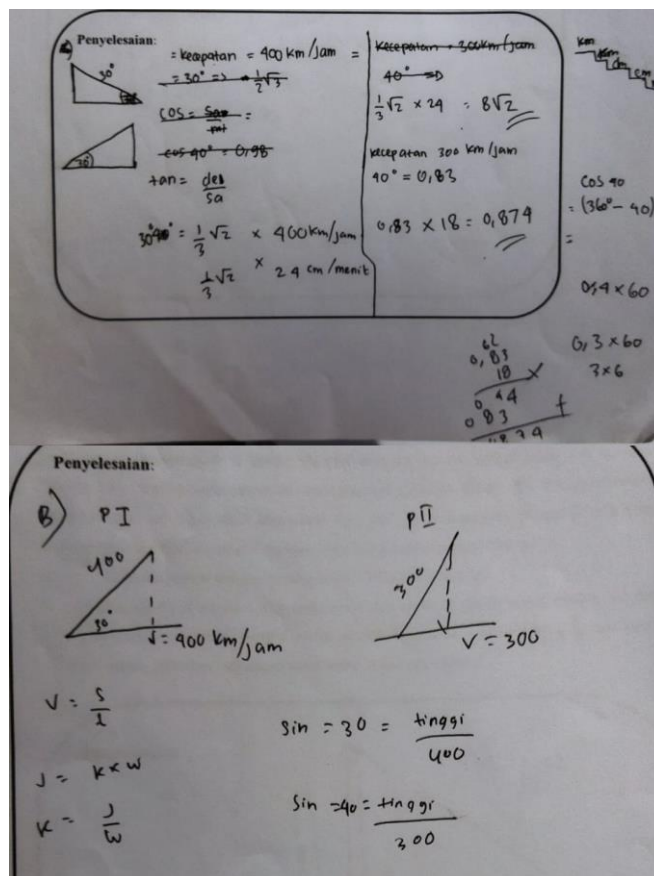 Penyelesaian:
= kecepatan = 400 km/jam =
= 30° => 1/2√3
30°
cos = sa/mi =
cos 40° = 0,98
30°
tan = de/sa
30° = 1/3 √2 × 400 km/jam
1/3 √2 × 24 cm/menit
kecepatan = 300 km/jam
40° =>
1/3 √2 × 24 = 8√2
kecepatan 300 km/jam
40° = 0,83
0,83 × 18 = 0,874
km
cm
cos 40
= (360° - 40)
=
0,4 × 60
0,3 × 60
3×6
62
0,83
18 ×
0 44
0 83 +
Penyelesaian:
B) P I
400
30°
V = 400 km/jam
P II
300
V = 300
V = S/t
J = K × W
K = J/W
Sin = 30 = tinggi/400
Sin = 40 = tinggi/300